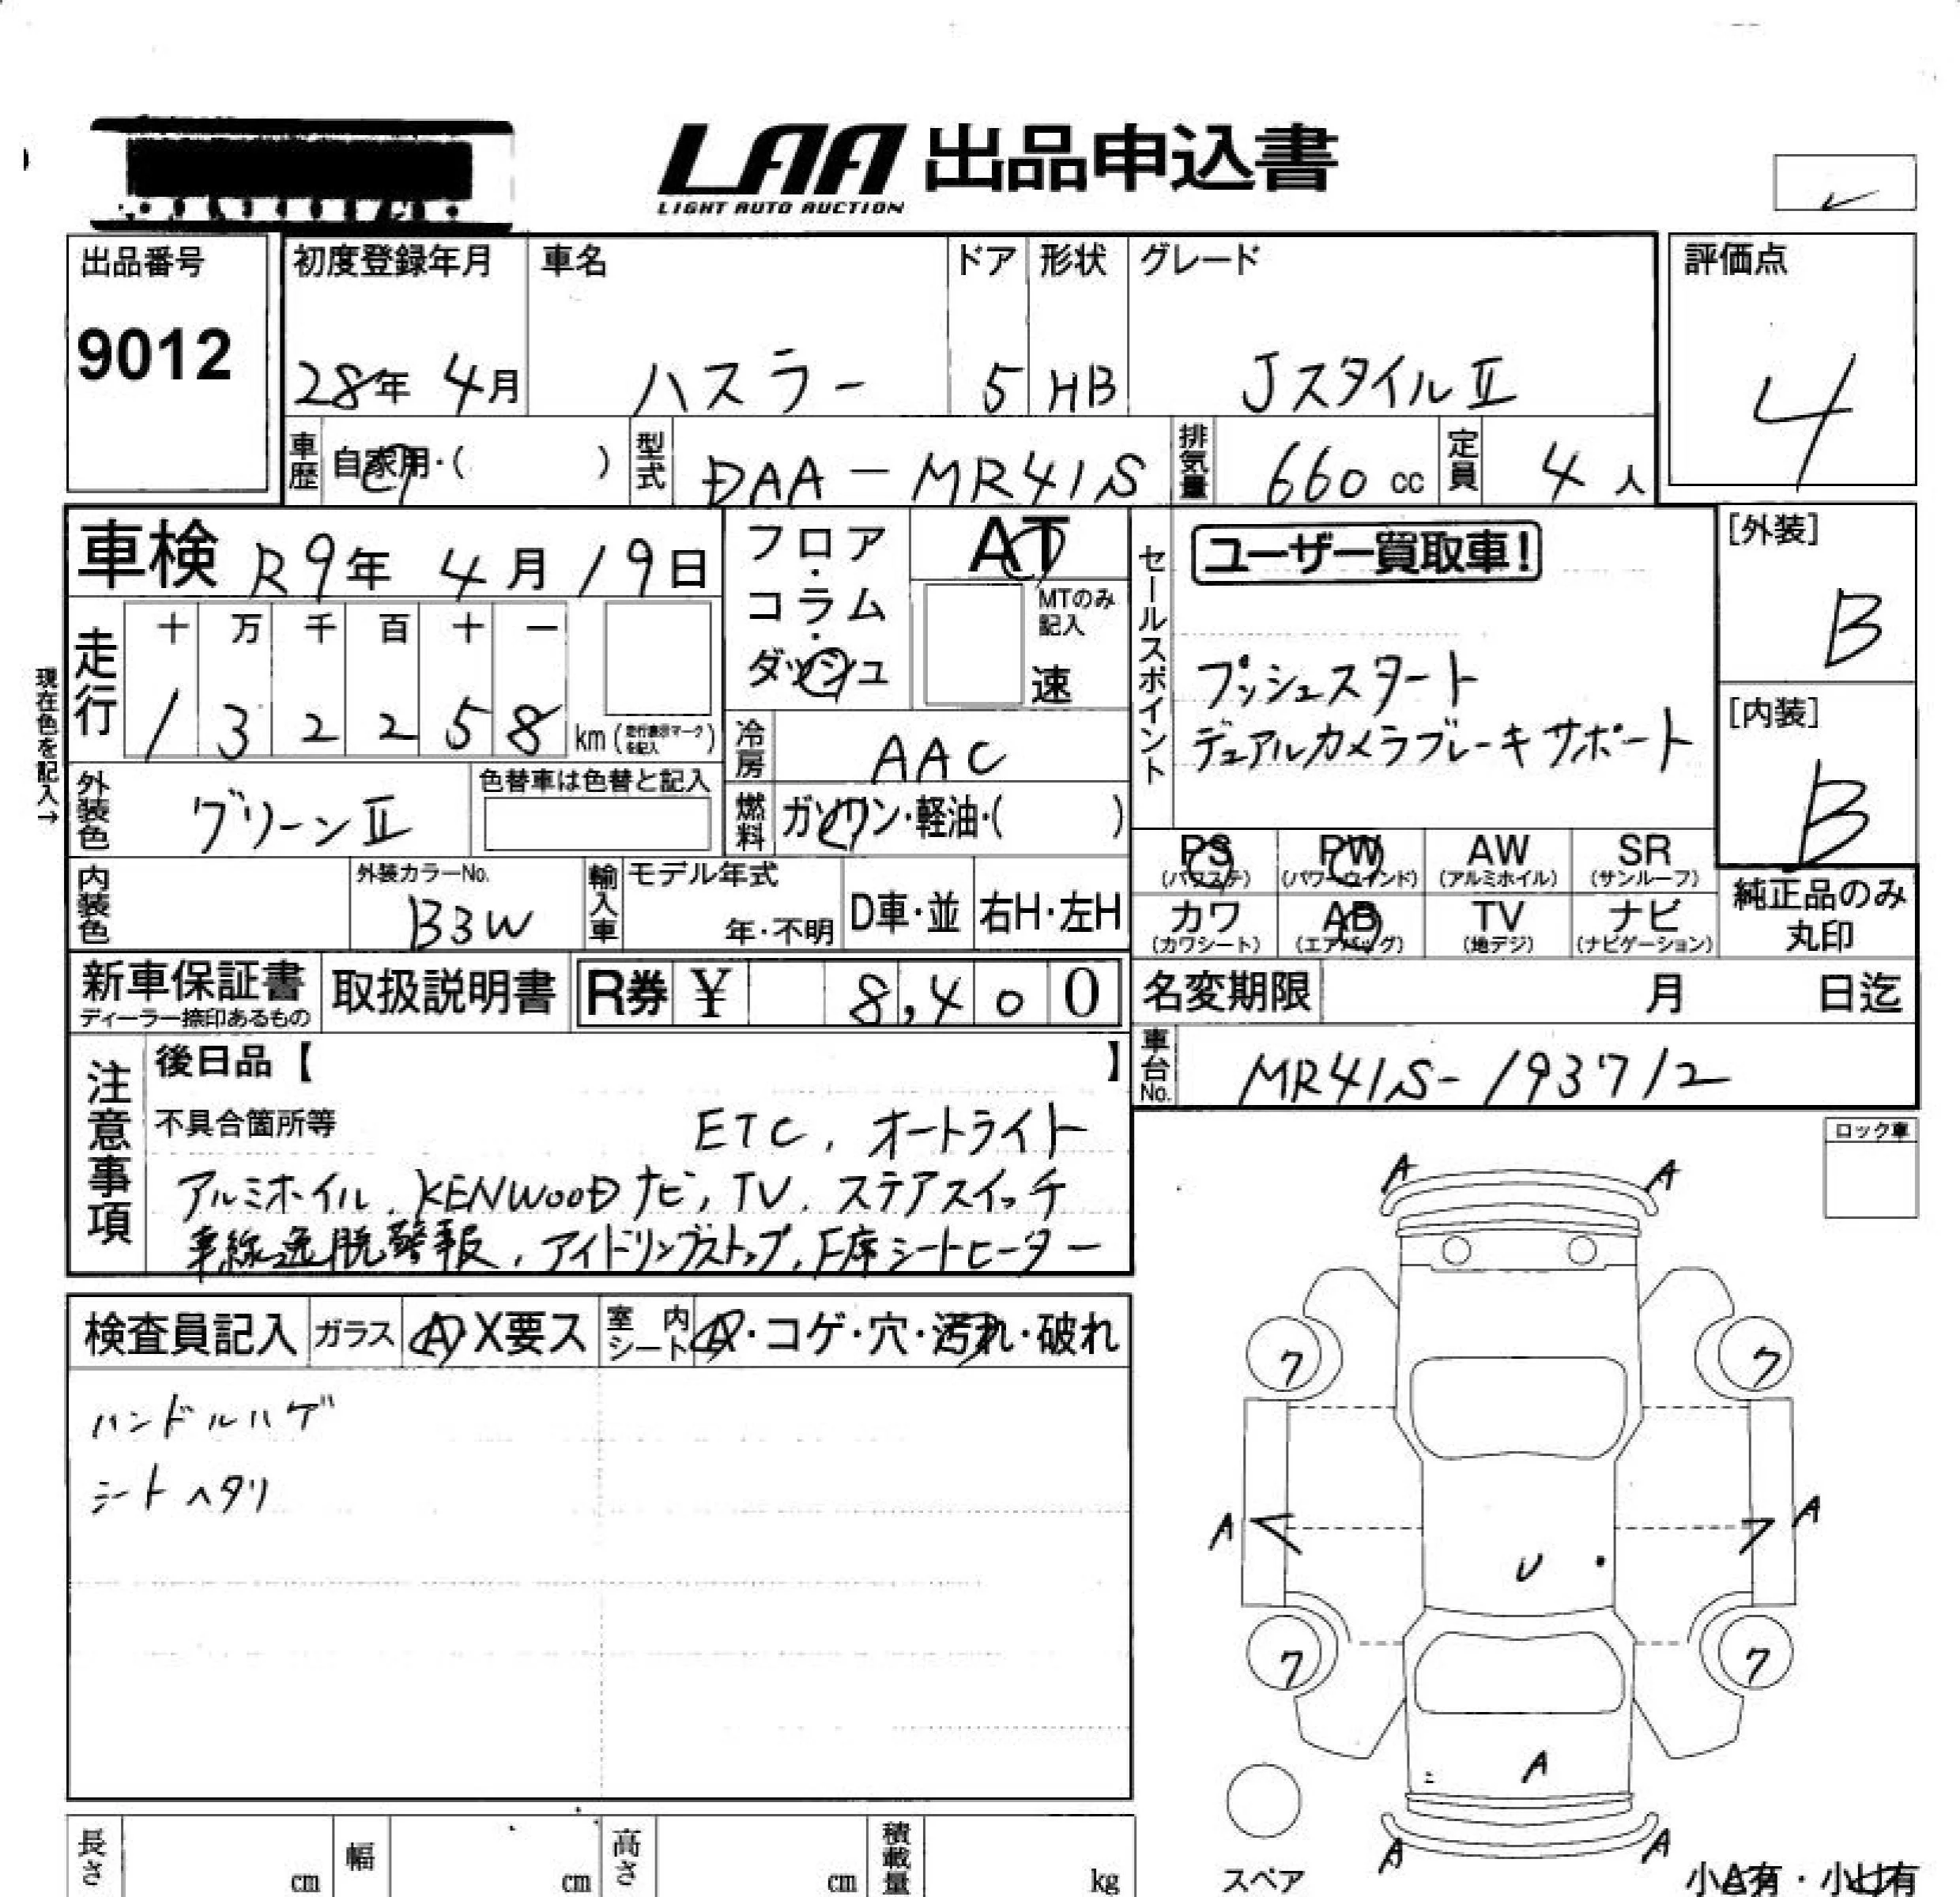 LAA 出品申込書
LIGHT AUTO AUCTION
出品番号
9012
初度登録年月
28年 4月
車名
ハスラー
ドア
5
形状
HB
グレード
JスタイルⅡ
評価点
4
車歴
自家用・( )
型式
DAA-MR41S
排気量
660 cc
定員
4 人
車検 R9年 4月 19日
現在色を記入→
走行
十 万 千 百 十 一
1 3 2 2 5 8 km (走行表示マークを記入)
フロア・コラム・ダッシュ
AT
MTのみ記入
速
セールスポイント
ユーザー買取車!
プッシュスタート
デュアルカメラブレーキサポート
[外装]
B
[内装]
B
冷房
AAC
外装色
グリーンⅡ
色替車は色替と記入
燃料
ガソリン・軽油・( )
PS (パワステ)
PW (パワーウインド)
AW (アルミホイル)
SR (サンルーフ)
カワ (カワシート)
AB (エアバッグ)
TV (地デジ)
ナビ (ナビゲーション)
純正品のみ
丸印
内装色
外装カラーNo.
B3W
輸入車
モデル年式
年・不明
D車・並
右H・左H
新車保証書
ディーラー捺印あるもの
取扱説明書
R券 ¥ 8,400
名変期限 月 日迄
車台No.
MR41S-193712
注意事項
後日品【 】
不具合箇所等
ETC, オートライト
アルミホイル, KENWOODナビ, TV, ステアスイッチ
車線逸脱警報, アイドリングストップ, F席シートヒーター
ロック車
検査員記入
ガラス
A X要ス
室内シート
A・コゲ・穴・汚れ・破れ
ハンドルハゲ
シートヘタリ
A A
ワ ワ
A A
U
ワ ワ
A
A A
スペア
小A有・小U有
長さ cm
幅 cm
高さ cm
積載量 kg